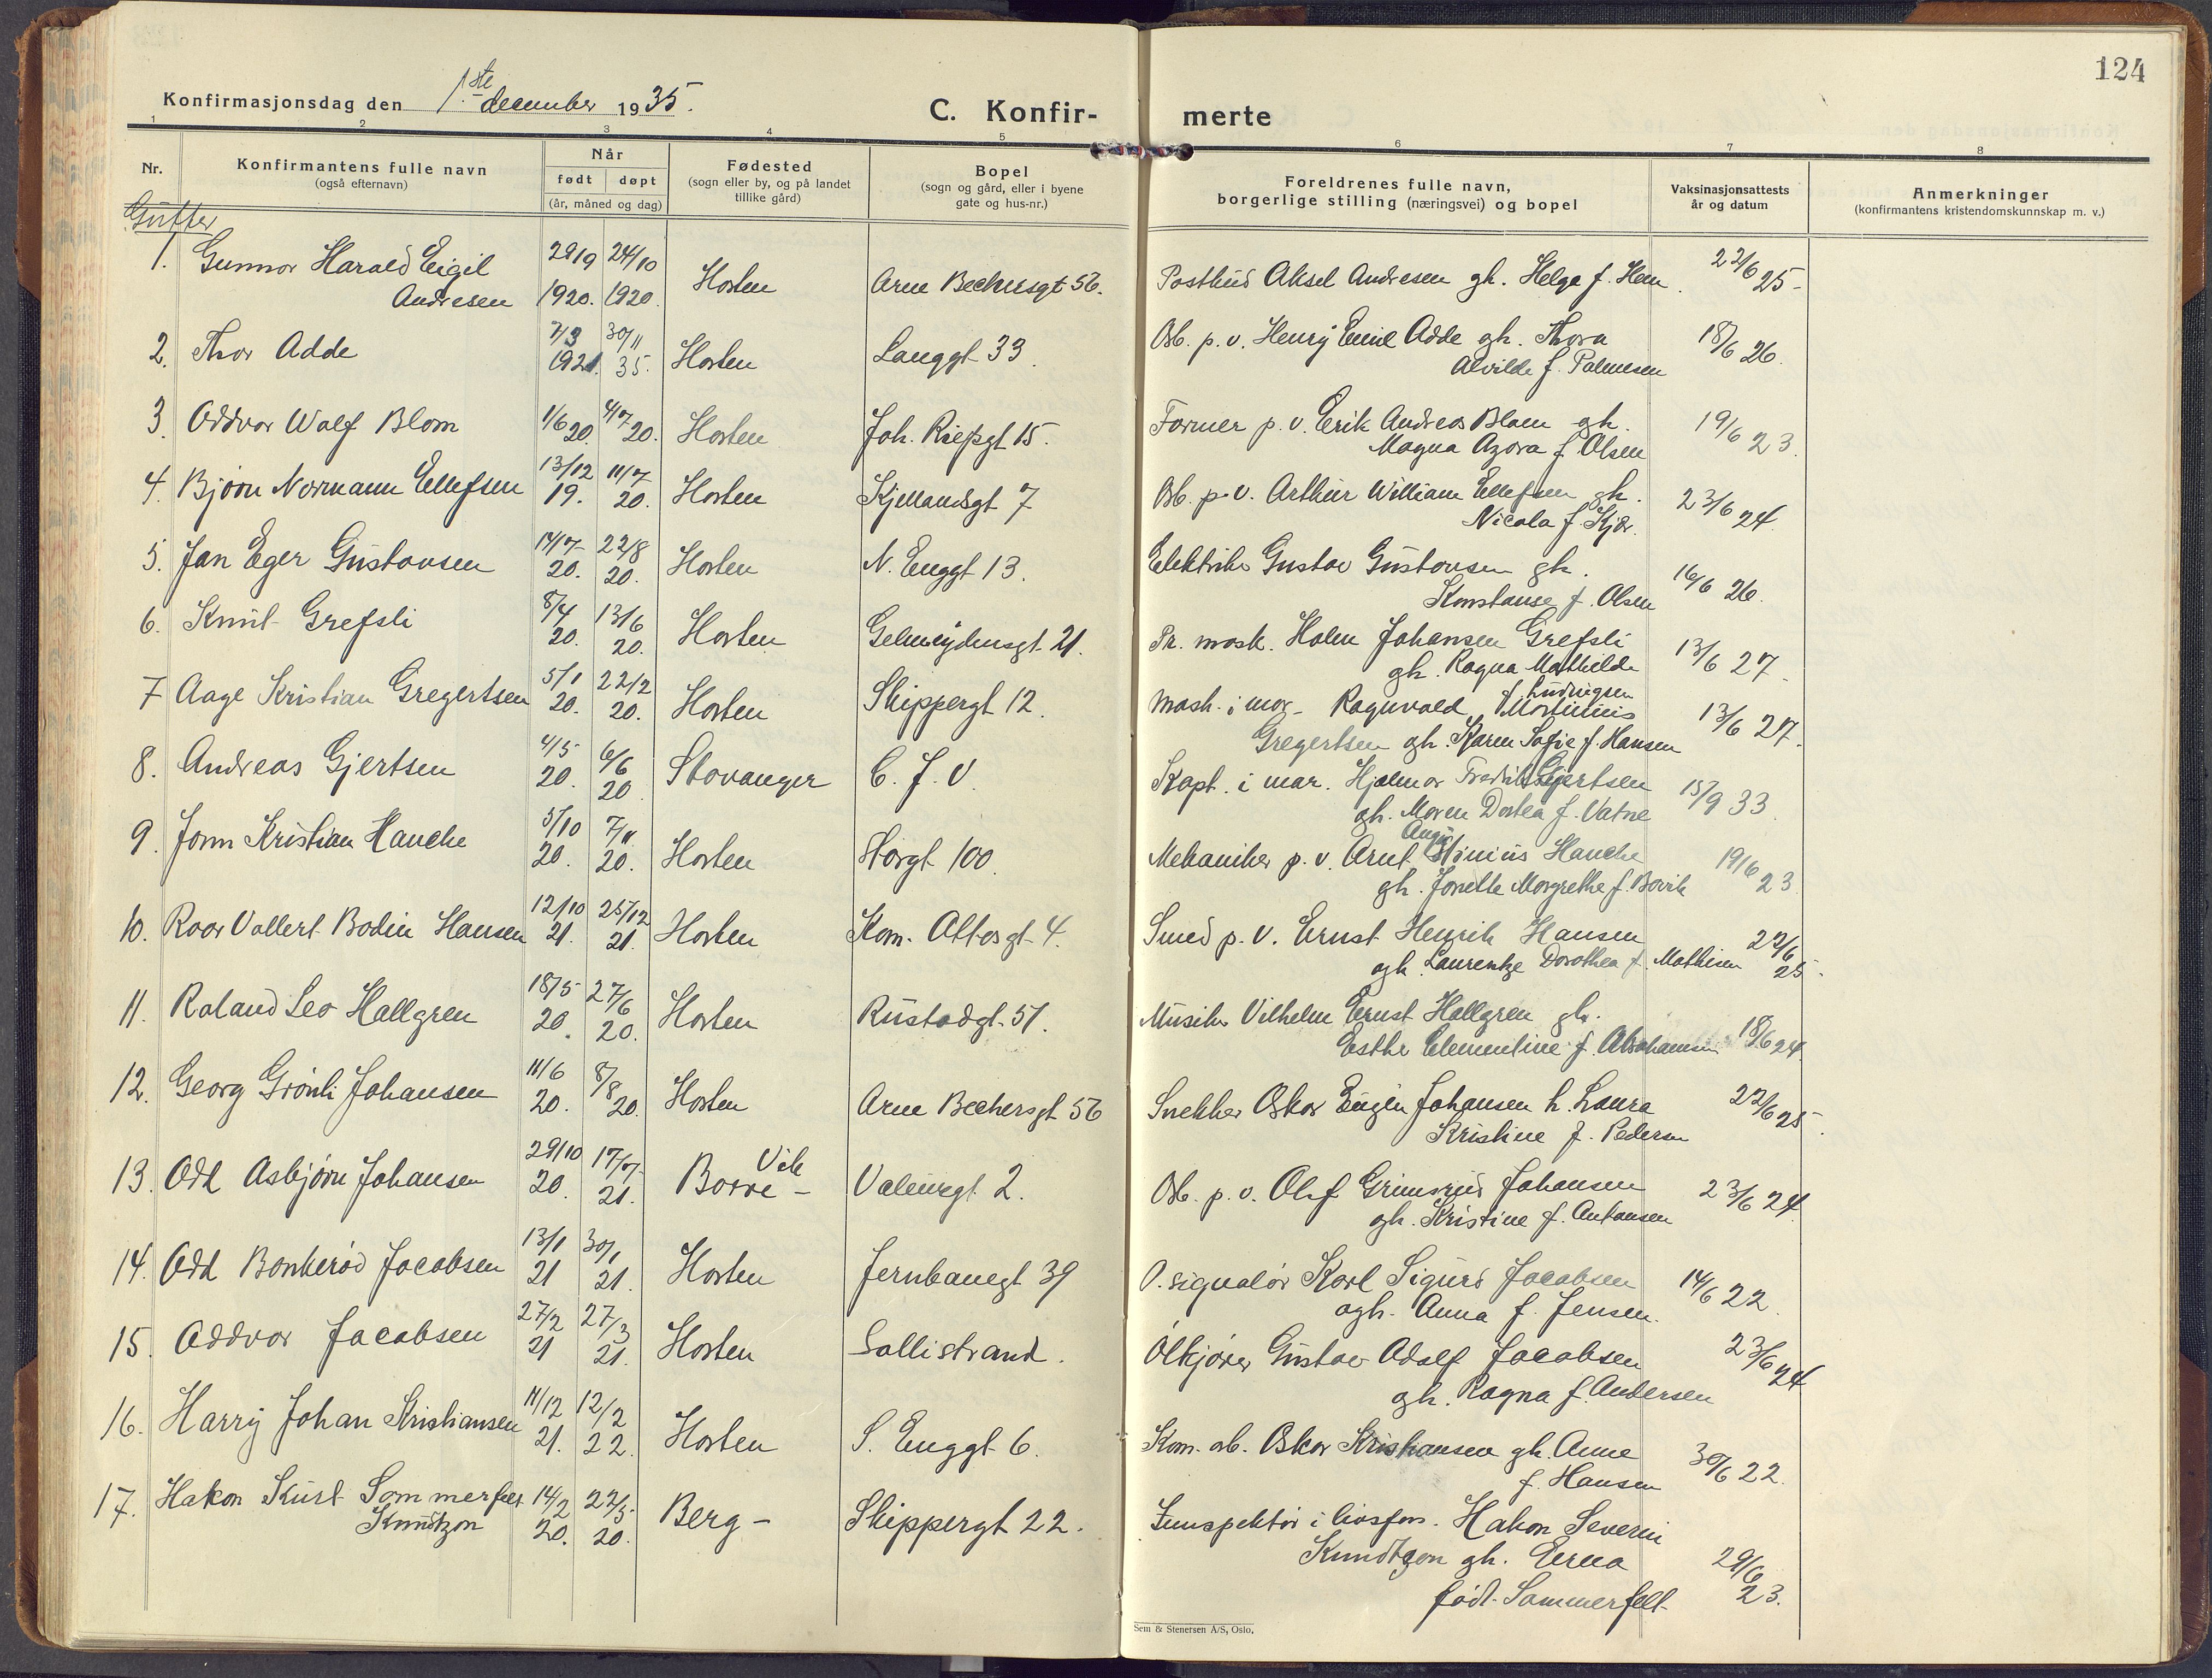 124
Konfirmasjonsdag den 1ste december 1935.
C. Konfir- merte
1 2 3 4 5 6 7 8
Nr.
Konfirmantens fulle navn
(også efternavn)
Når
født døpt
(år, måned og dag)
Fødested
(sogn eller by, og på landet
tillike gård)
Bopel
(sogn og gård, eller i byene
gate og hus-nr.)
Foreldrenes fulle navn,
borgerlige stilling (næringsvei) og bopel
Vaksinasjonsattests
år og datum
Anmerkninger
(konfirmantens kristendomskunnskap m. v.)
Gutter
1. Gunnar Harald Eigil 29/9 24/10 Horten Arne Bechersgt 56. Postbud Aksel Andresen gh. Helga f. Hem 22/6 25
Andresen 1920. 1920
2. Thor Adde 7/3 30/11 Horten Langgt 33. Arb. p. v. Henry Emil Adde gh. Thora 18/6 26.
1921. 35. Alvilde f. Palmesen
3. Oddvar Walf Blom 1/6 20. 4/7 20. Horten Joh. Riepgt 15. Former p. v. Erik Andreas Blom gh. 19/6 23.
Magna Azora f. Olsen
4. Bjørn Normann Ellefsen 13/12 11/7 Horten Kjellandsgt 7 Arb. p. v. Arthur William Ellefsen gh. 23/6 24.
19. 20. Nicola f. Kjær.
5. Jan Eger Gustavsen 14/7 22/8 Horten N. Enggt 13. Elektriker Gustav Gustavsen gh. 16/6 26.
20. 20. Konstanse f. Olsen
6. Knut Grefsli 8/4 13/6 Horten Gelmeydensgt 21. Pr. mask. Holm Johansen Grefsli 13/6 27
20. 20. gh. Ragna Mathilde
f. Ludvigsen
7 Aage Kristian Gregertsen 5/1 22/2 Horten Skippergt 12. Mask. i mar. Ragnvald Mortinius 13/6 27.
20. 20. Gregertsen gh. Karen Sofie f. Hansen
8. Andreas Gjertsen 4/5 6/6 Stavanger C. J. V. Kapt. i mar. Hjalmar Fredrik Gjertsen 15/9 33
20. 20 gh. Maren Dortea f. Vatne
9. Jonn Kristian Hauche 5/10 7/11 Horten Storgt 100. Mekaniker p. v. Arnt Hauche 19/6 23
20. 20. gh. Jonette Margrethe f. Borvik
10. Roar Vallert Bodin Hansen 12/10 25/12 Horten Kom. Attosgt 4. Smed p. v. Ernst Henrik Hansen 22/6 25
21. 21. gh. Laurentze Dorothea f. Mathisen
11. Roland Leo Hallgren 18/5 27/6 Horten Rustadgt. 51. Musiker Vilhelm Ernst Hallgren gh. 18/6 24
20. 20. Esther Clementine f. Abrahamsen
12. Georg Grønli Johansen 11/6 8/8 Horten Arne Bechersgt 56 Snekker Oskar Eugen Johansen h. Laura 22/6 25
20. 20. Kristine f. Pedersen
13. Odd Asbjørn Johansen 29/10 17/7 Borre - Vik Valeurgt. 2. Arb. p. v. Olaf Grimsrud Johansen 23/6 24.
20. 21. gh. Kristine f. Antonsen
14. Odd Bonkerød Jacobsen 13/1 30/1 Horten Jernbanegt 39 O. signalør Karl Sigurd Jacobsen 14/6 22.
21 21. ogh. Anna f. Jensen.
15. Oddvar Jacobsen 27/2 27/3 Horten Sollistrand. Ølkjører Gustav Adolf Jacobsen 23/6 24
21 21. gh. Ragna f. Andersen
16. Harry Johan Kristiansen 11/12 12/2 Horten S. Enggt 6. Kom. arb. Oskar Kristiansen gh. Anne 30/6 22.
21. 22. f. Hansen
17. Hakon Kurt Sommerfelt 14/2 22/5 Berg - Skippergt 22. Hakon Severin
Knudtzon 20. 20. Knudtzon gh. Erna 29/6 23.
født Sommerfelt
Sem & Stenersen A/S, Oslo.